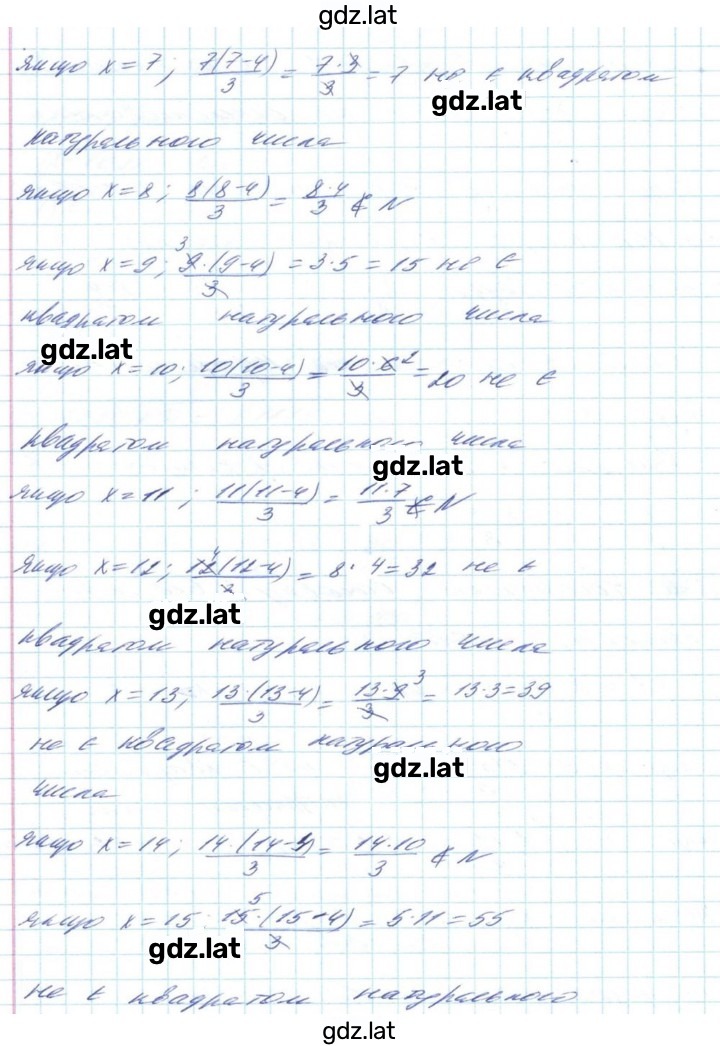 gdz.lat
якщо x = 7; 7(7-4)/3 = 7·3/3 = 7 не є квадратом
gdz.lat
натурального числа
якщо x=8; 8(8-4)/3 = 8·4/3 ∉ N
якщо x=9; 9·(9-4)/3 = 3·5 = 15 не є
квадратом натурального числа
gdz.lat
якщо x=10; 10(10-4)/3 = 10·6/3 = 20 не є
квадратом натурального числа
gdz.lat
якщо x=11; 11(11-4)/3 = 11·7/3 ∉ N
якщо x=12; 12(12-4)/3 = 8·4=32 не є
gdz.lat
квадратом натурального числа
якщо x=13; 13·(13-4)/3 = 13·9/3 = 13·3=39
не є квадратом натурального
gdz.lat
числа
якщо x=14; 14·(14-4)/3 = 14·10/3 ∉ N
якщо x=15 15·(15-4)/3 = 5·11=55
gdz.lat
не є квадратом натурального
gdz.lat